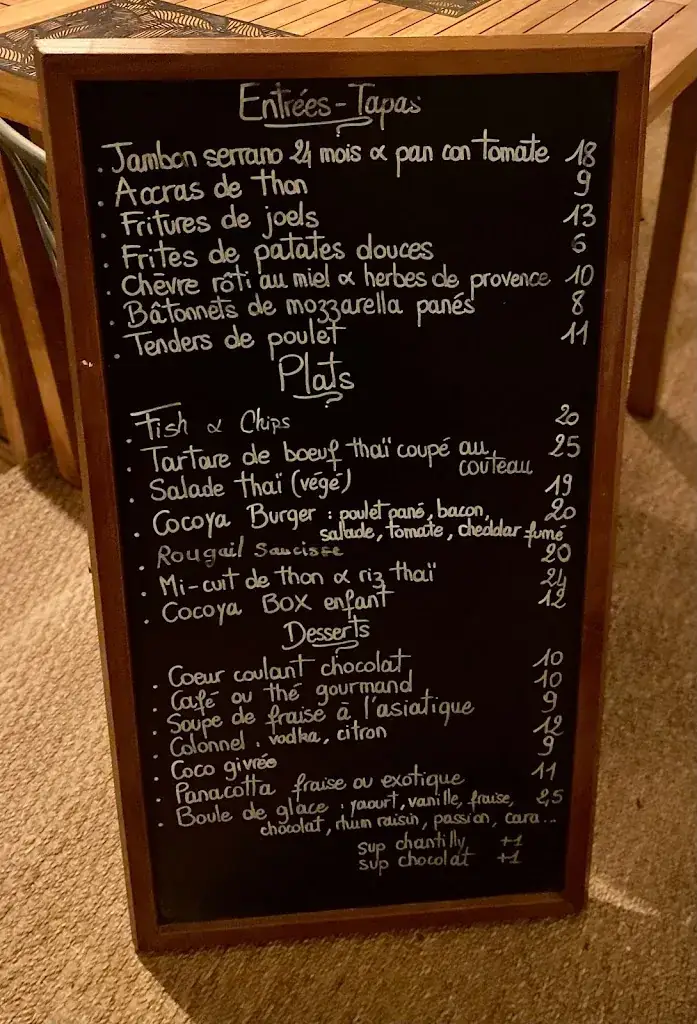 Entrées - Tapas
. Jambon serrano 24 mois & pan con tomate 18
. Accras de thon 9
. Fritures de joels 13
. Frites de patates douces 6
. Chèvre rôti au miel & herbes de provence 10
. Bâtonnets de mozzarella panés 8
. Tenders de poulet 11
Plats
. Fish & Chips 20
. Tartare de boeuf thaï coupé au 25
couteau
. Salade thaï (végé) 19
. Cocoya Burger : poulet pané, bacon, 20
salade, tomate, cheddar fumé
. Rougail saucisse 20
. Mi-cuit de thon & riz thaï 24
. Cocoya BOX enfant 12
Desserts
. Coeur coulant chocolat 10
. Café ou thé gourmand 10
. Soupe de fraise à l'asiatique 9
. Colonnel : vodka, citron 12
. Coco givrée 9
. Panacotta fraise ou exotique 11
. Boule de glace : yaourt, vanille, fraise, 2,5
chocolat, rhum raisin, passion, cara...
sup chantilly +1
sup chocolat +1